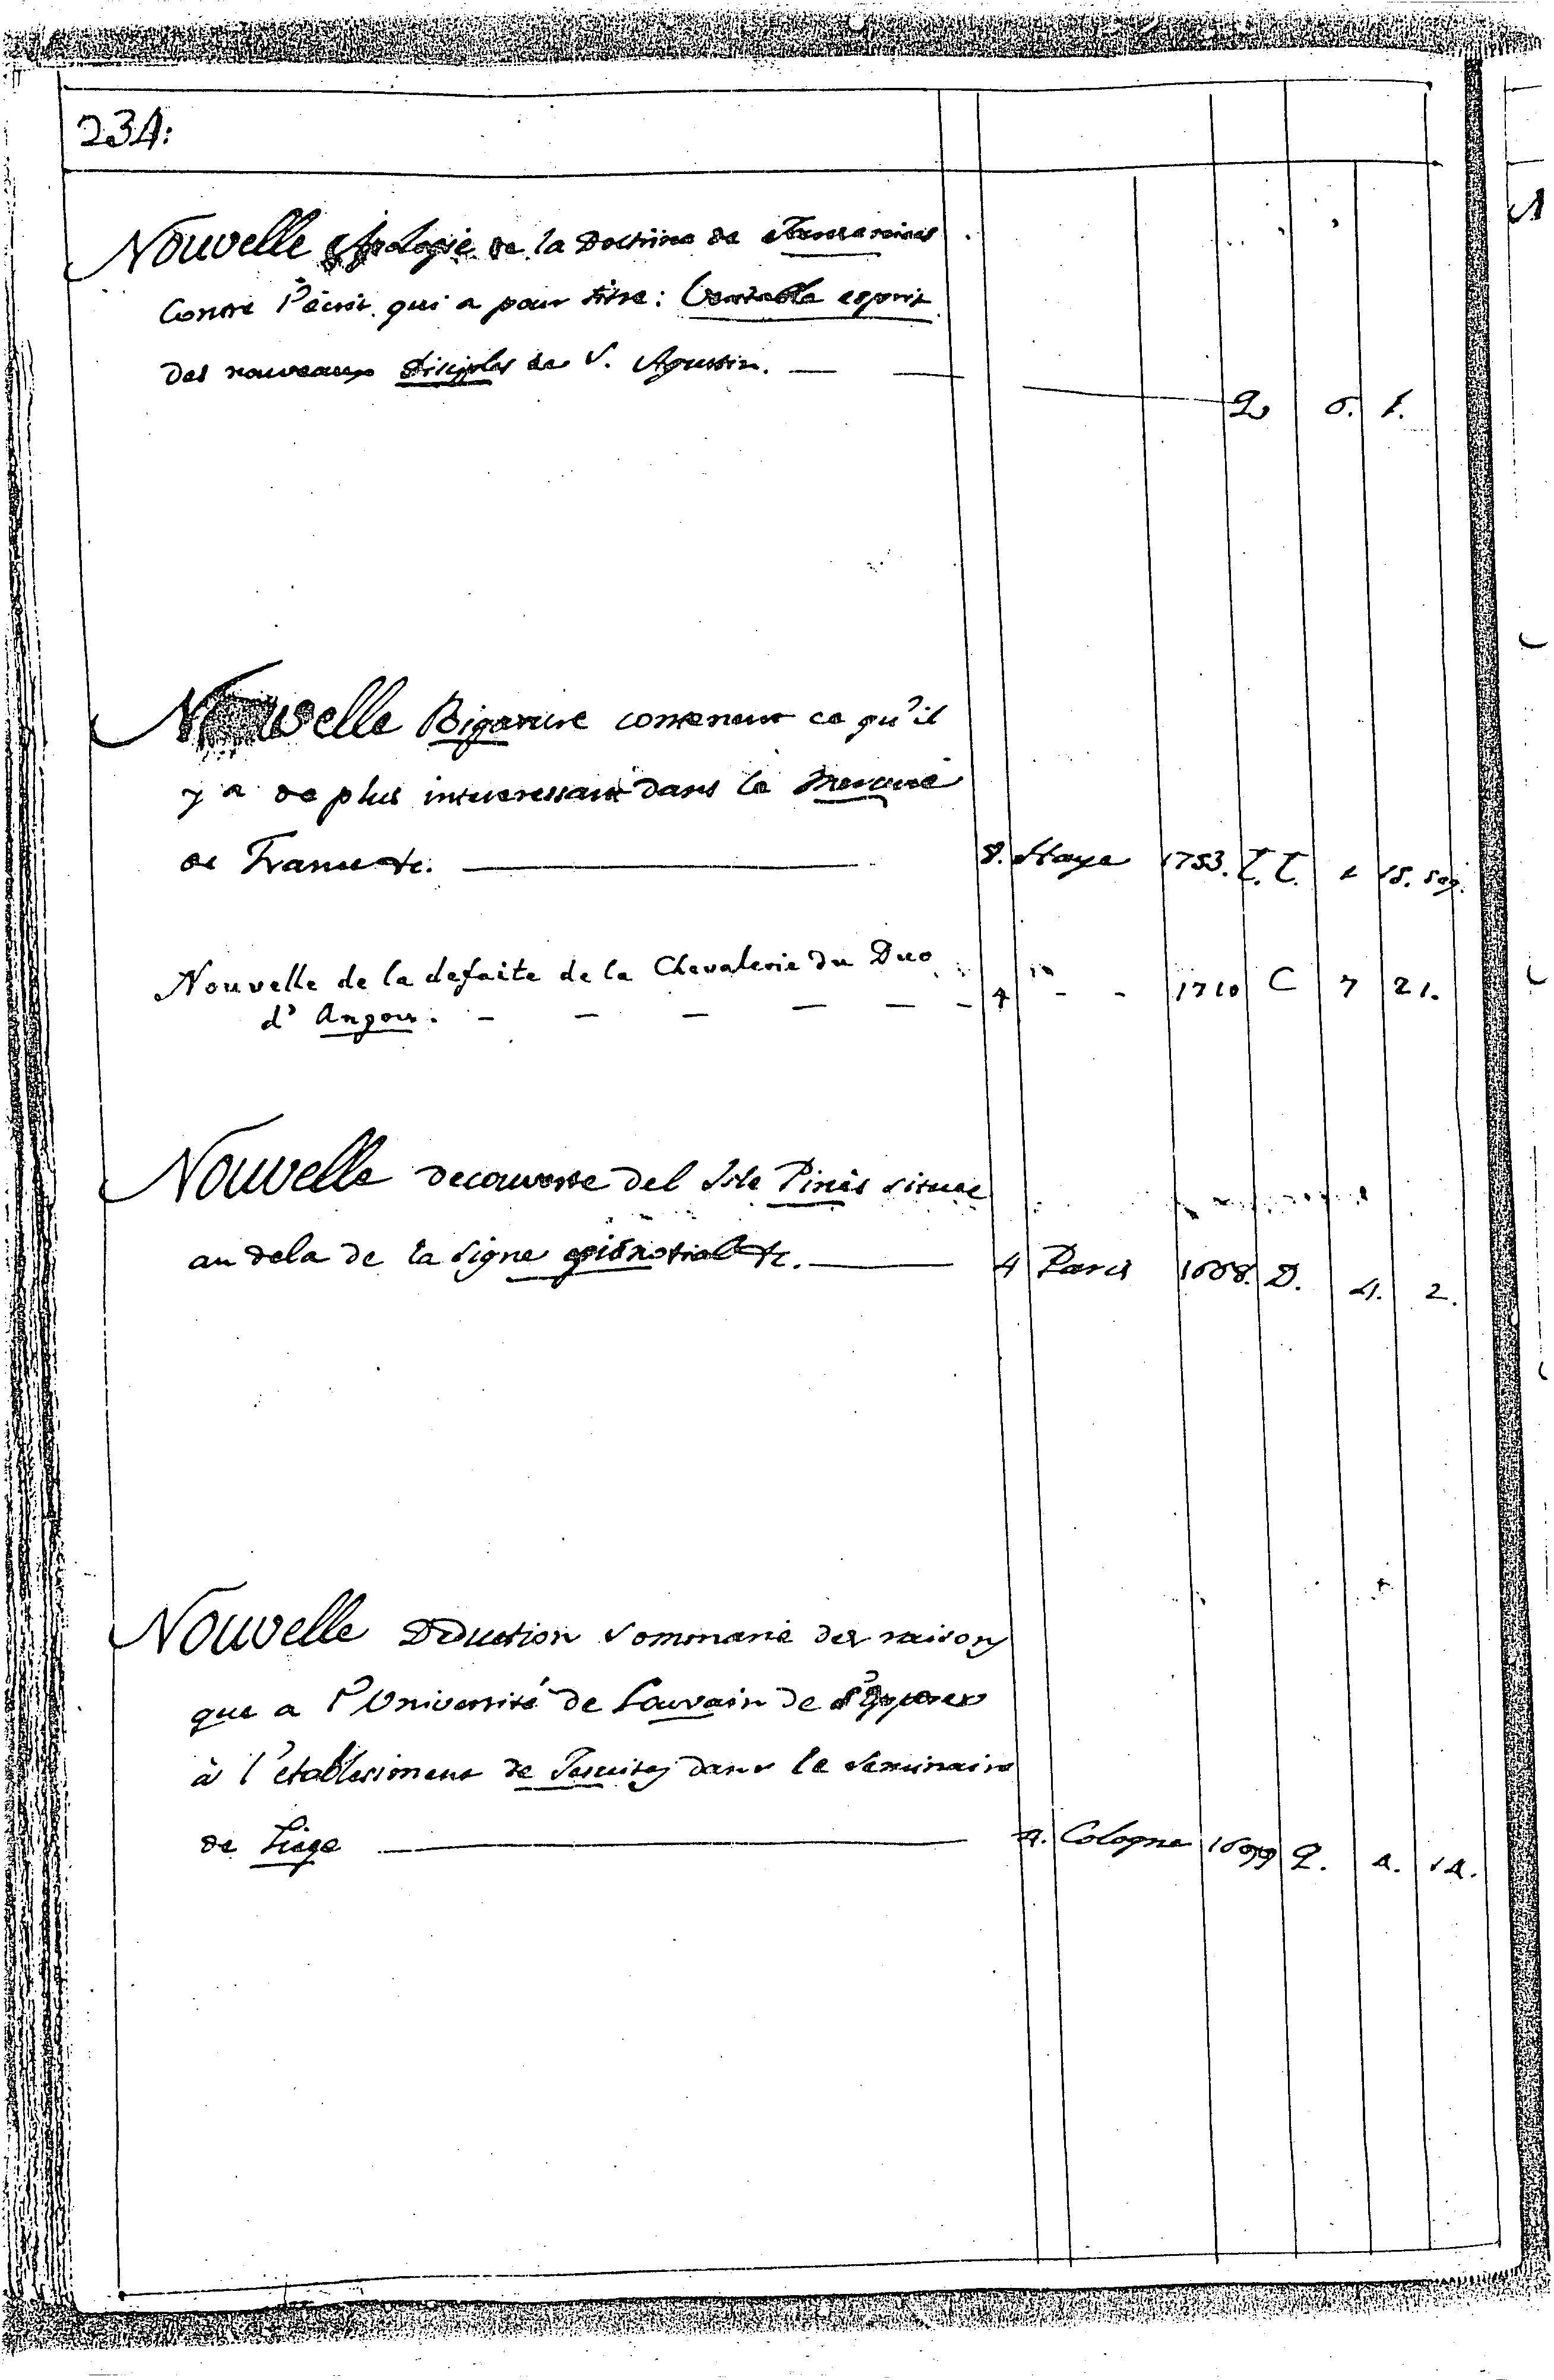 234:
Nouvelle Apologie de la Doctrine de
Contre l'écrit qui a pour titre: Veritable esprit
Des nouveaux disciples de S. Agustin. — — — Q 6. 1.
Nouvelle Bigarure contenant ce qu'il
y a de plus interessant dans le Mercure
de France &c. — 8. Haye 1753. T.T. 1 15. seq.
Nouvelle de la defaite de la Chevalerie du Duc
d' Anjou. - - - - - - 4 - - 1710 C 7 21.
Nouvelle Decouverte del Isle Pinès situee
au dela de la Ligne &c. — 4 Paris 1668. D. 4. 2.
Nouvelle Deduction Sommarie des raisons
que a l'Université de Louvain de s'Opposer
à l'etablissiment de Jesuites dans le Seminaire
de Liege — 4. Cologne 1699 Q. 4. 14.